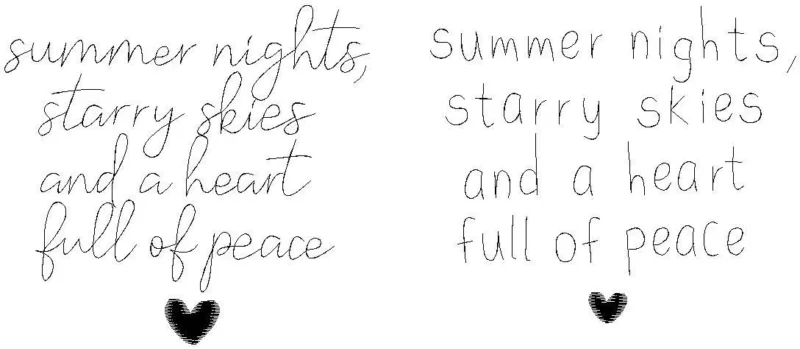 summer nights,
starry skies
and a heart
full of peace
summer nights,
starry skies
and a heart
full of peace